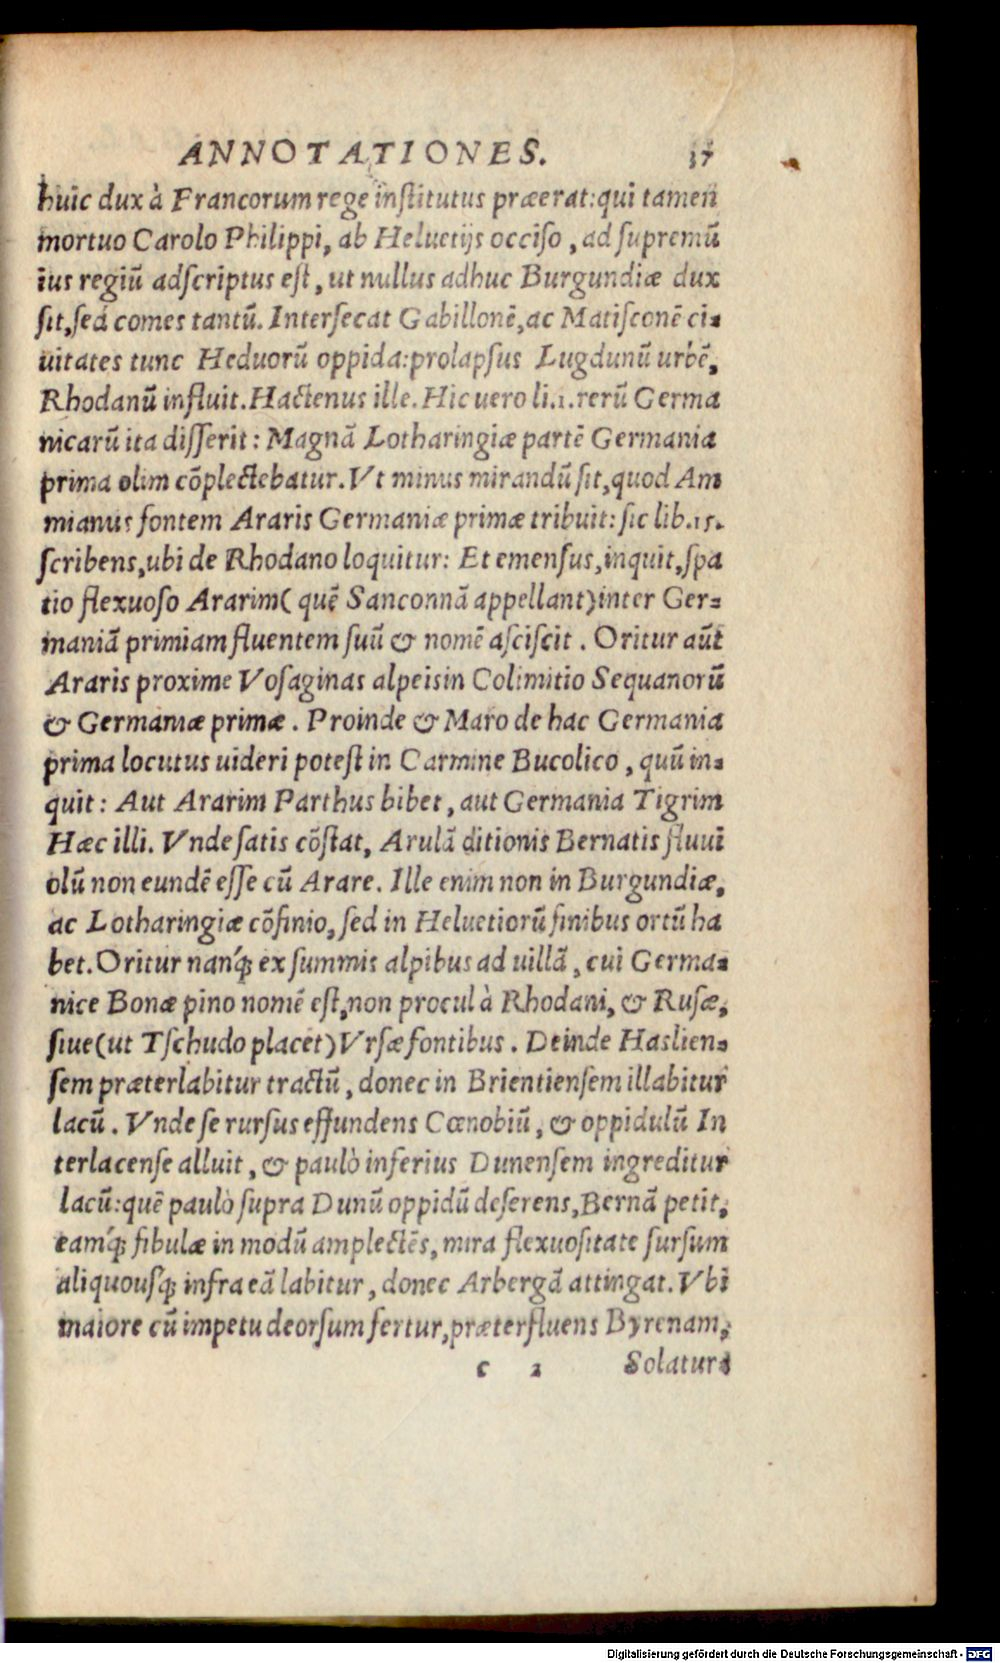 ANNOTATIONES. 37
huic dux à Francorum rege inſtitutus præerat:qui tamen
mortuo Carolo Philippi, ab Heluetijs occiſo, ad ſupremũ
ius regiũ adſcriptus eſt, ut nullus adhuc Burgundiæ dux
ſit,ſed comes tantũ. Interſecat Gabillonẽ,ac Matiſconẽ ci=
uitates tunc Heduorũ oppida:prolapſus Lugdunũ urbẽ,
Rhodanũ influit.Hactenus ille. Hic uero li.1.rerũ Germa
nicarũ ita diſſerit: Magnã Lotharingiæ partẽ Germania
prima olim cõplectebatur. Vt minus mirandũ ſit,quod Am
mianus fontem Araris Germaniæ primæ tribuit: ſic lib.15.
ſcribens,ubi de Rhodano loquitur: Et emenſus,inquit,ſpa
tio flexuoſo Ararim( quẽ Sanconnã appellant)inter Ger=
maniã primiam fluentem ſuũ & nomẽ aſciſcit. Oritur aũt
Araris proxime Voſaginas alpeis in Colimitio Sequanorũ
& Germaniæ primæ. Proinde & Maro de hac Germania
prima locutus uideri poteſt in Carmine Bucolico, quũ in=
quit: Aut Ararim Parthus bibet, aut Germania Tigrim
Hæc illi. Vnde ſatis cõſtat, Arulã ditionis Bernatis fluui
olũ non eundẽ eſſe cũ Arare. Ille enim non in Burgundiæ,
ac Lotharingiæ cõfinio, ſed in Heluetiorũ finibus ortũ ha
bet.Oritur nanq́; ex ſummis alpibus ad uillã, cui Germa=
nice Bonæ pino nomẽ eſt,non procul à Rhodani, & Ruſæ,
ſiue(ut Tſchudo placet)Vrſæ fontibus. Deinde Haslien=
ſem præterlabitur tractũ, donec in Brientienſem illabitur
lacũ. Vnde ſe rurſus effundens Cœnobiũ, & oppidulũ In
terlacenſe alluit, & paulò inferius Dunenſem ingreditur
lacũ:quẽ paulò ſupra Dunũ oppidũ deſerens,Bernã petit,
eamq́; fibulæ in modũ amplectẽs, mira flexuoſitate ſurſum
aliquouſq; infra eã labitur, donec Arbergã attingat. Vbi
maiore cũ impetu deorſum fertur,præterfluens Byrenam,
c 2 Solatur=
Digitalisierung gefördert durch die Deutsche Forschungsgemeinschaft - DFG